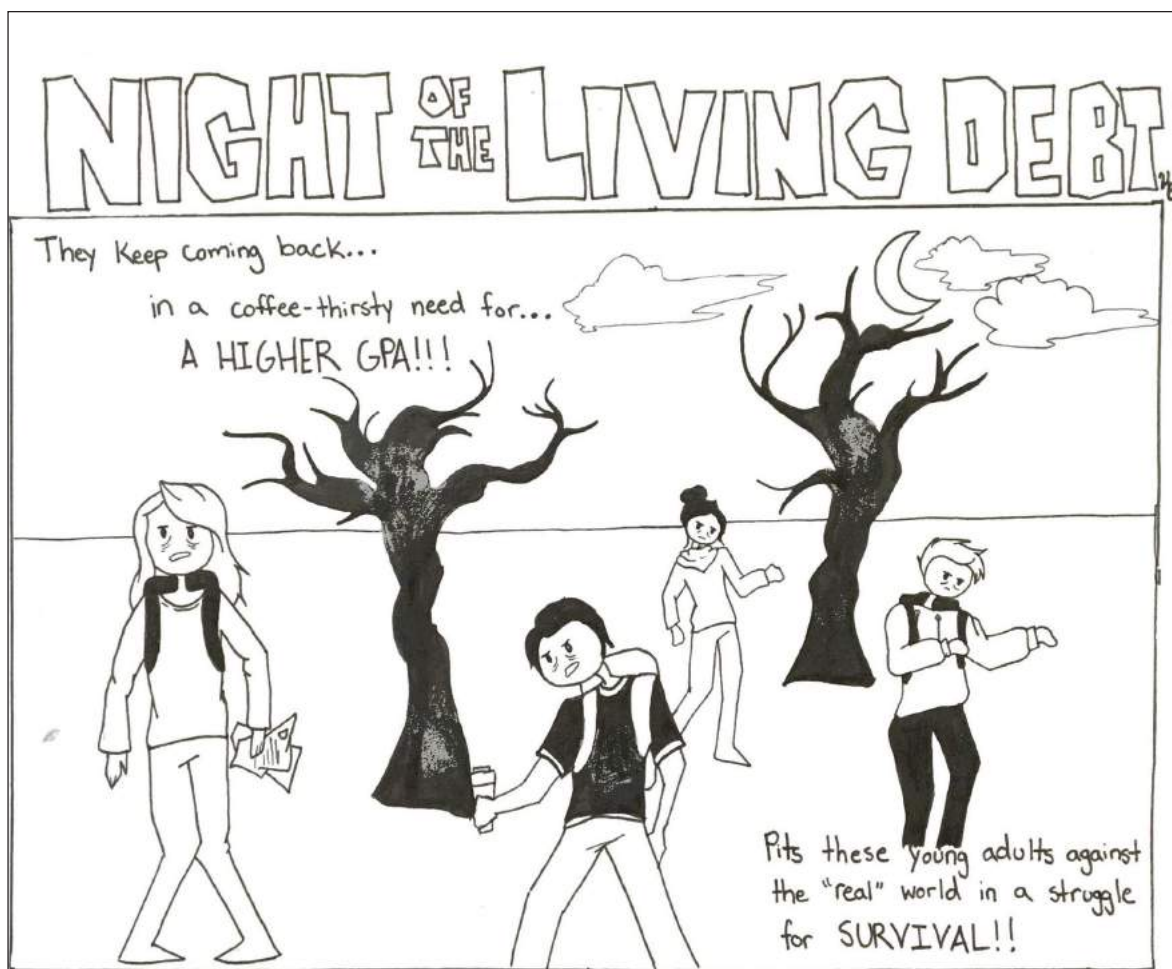 NIGHT OF THE LIVING DEBT
They Keep coming back...
in a coffee-thirsty need for...
A HIGHER GPA!!!
Pits these young adults against
the "real" world in a struggle
for SURVIVAL!!